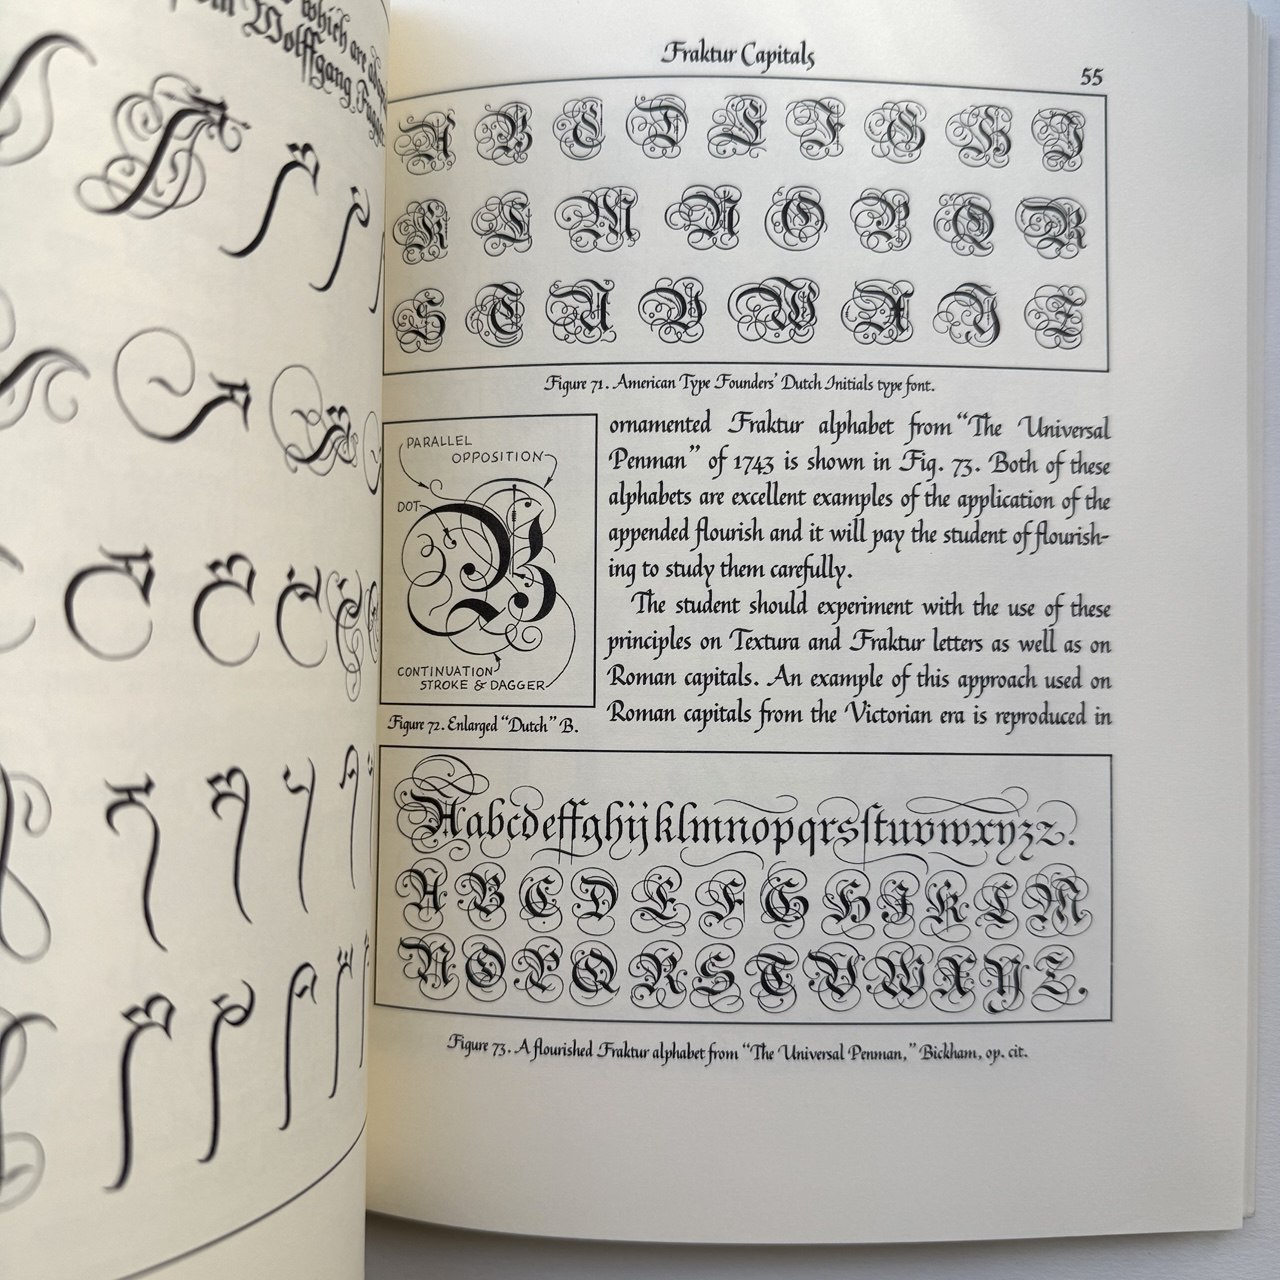 which are
Wolffgang Fugger
Fraktur Capitals
55
A B C D E F G H I
K L M N O P Q R
S T U V W X Y Z
Figure 71. American Type Founders' Dutch Initials type font.
PARALLEL
OPPOSITION
DOT
B
CONTINUATION
STROKE & DAGGER
Figure 72. Enlarged "Dutch" B.
ornamented Fraktur alphabet from "The Universal
Penman" of 1743 is shown in Fig. 73. Both of these
alphabets are excellent examples of the application of the
appended flourish and it will pay the student of flourish-
ing to study them carefully.
The student should experiment with the use of these
principles on Textura and Fraktur letters as well as on
Roman capitals. An example of this approach used on
Roman capitals from the Victorian era is reproduced in
Aabcdeffghijklmnopqrsſtuvwxyzz.
A B C D E F G H I K L M
N O P Q R S T V W X Y Z.
Figure 73. A flourished Fraktur alphabet from "The Universal Penman," Bickham, op. cit.